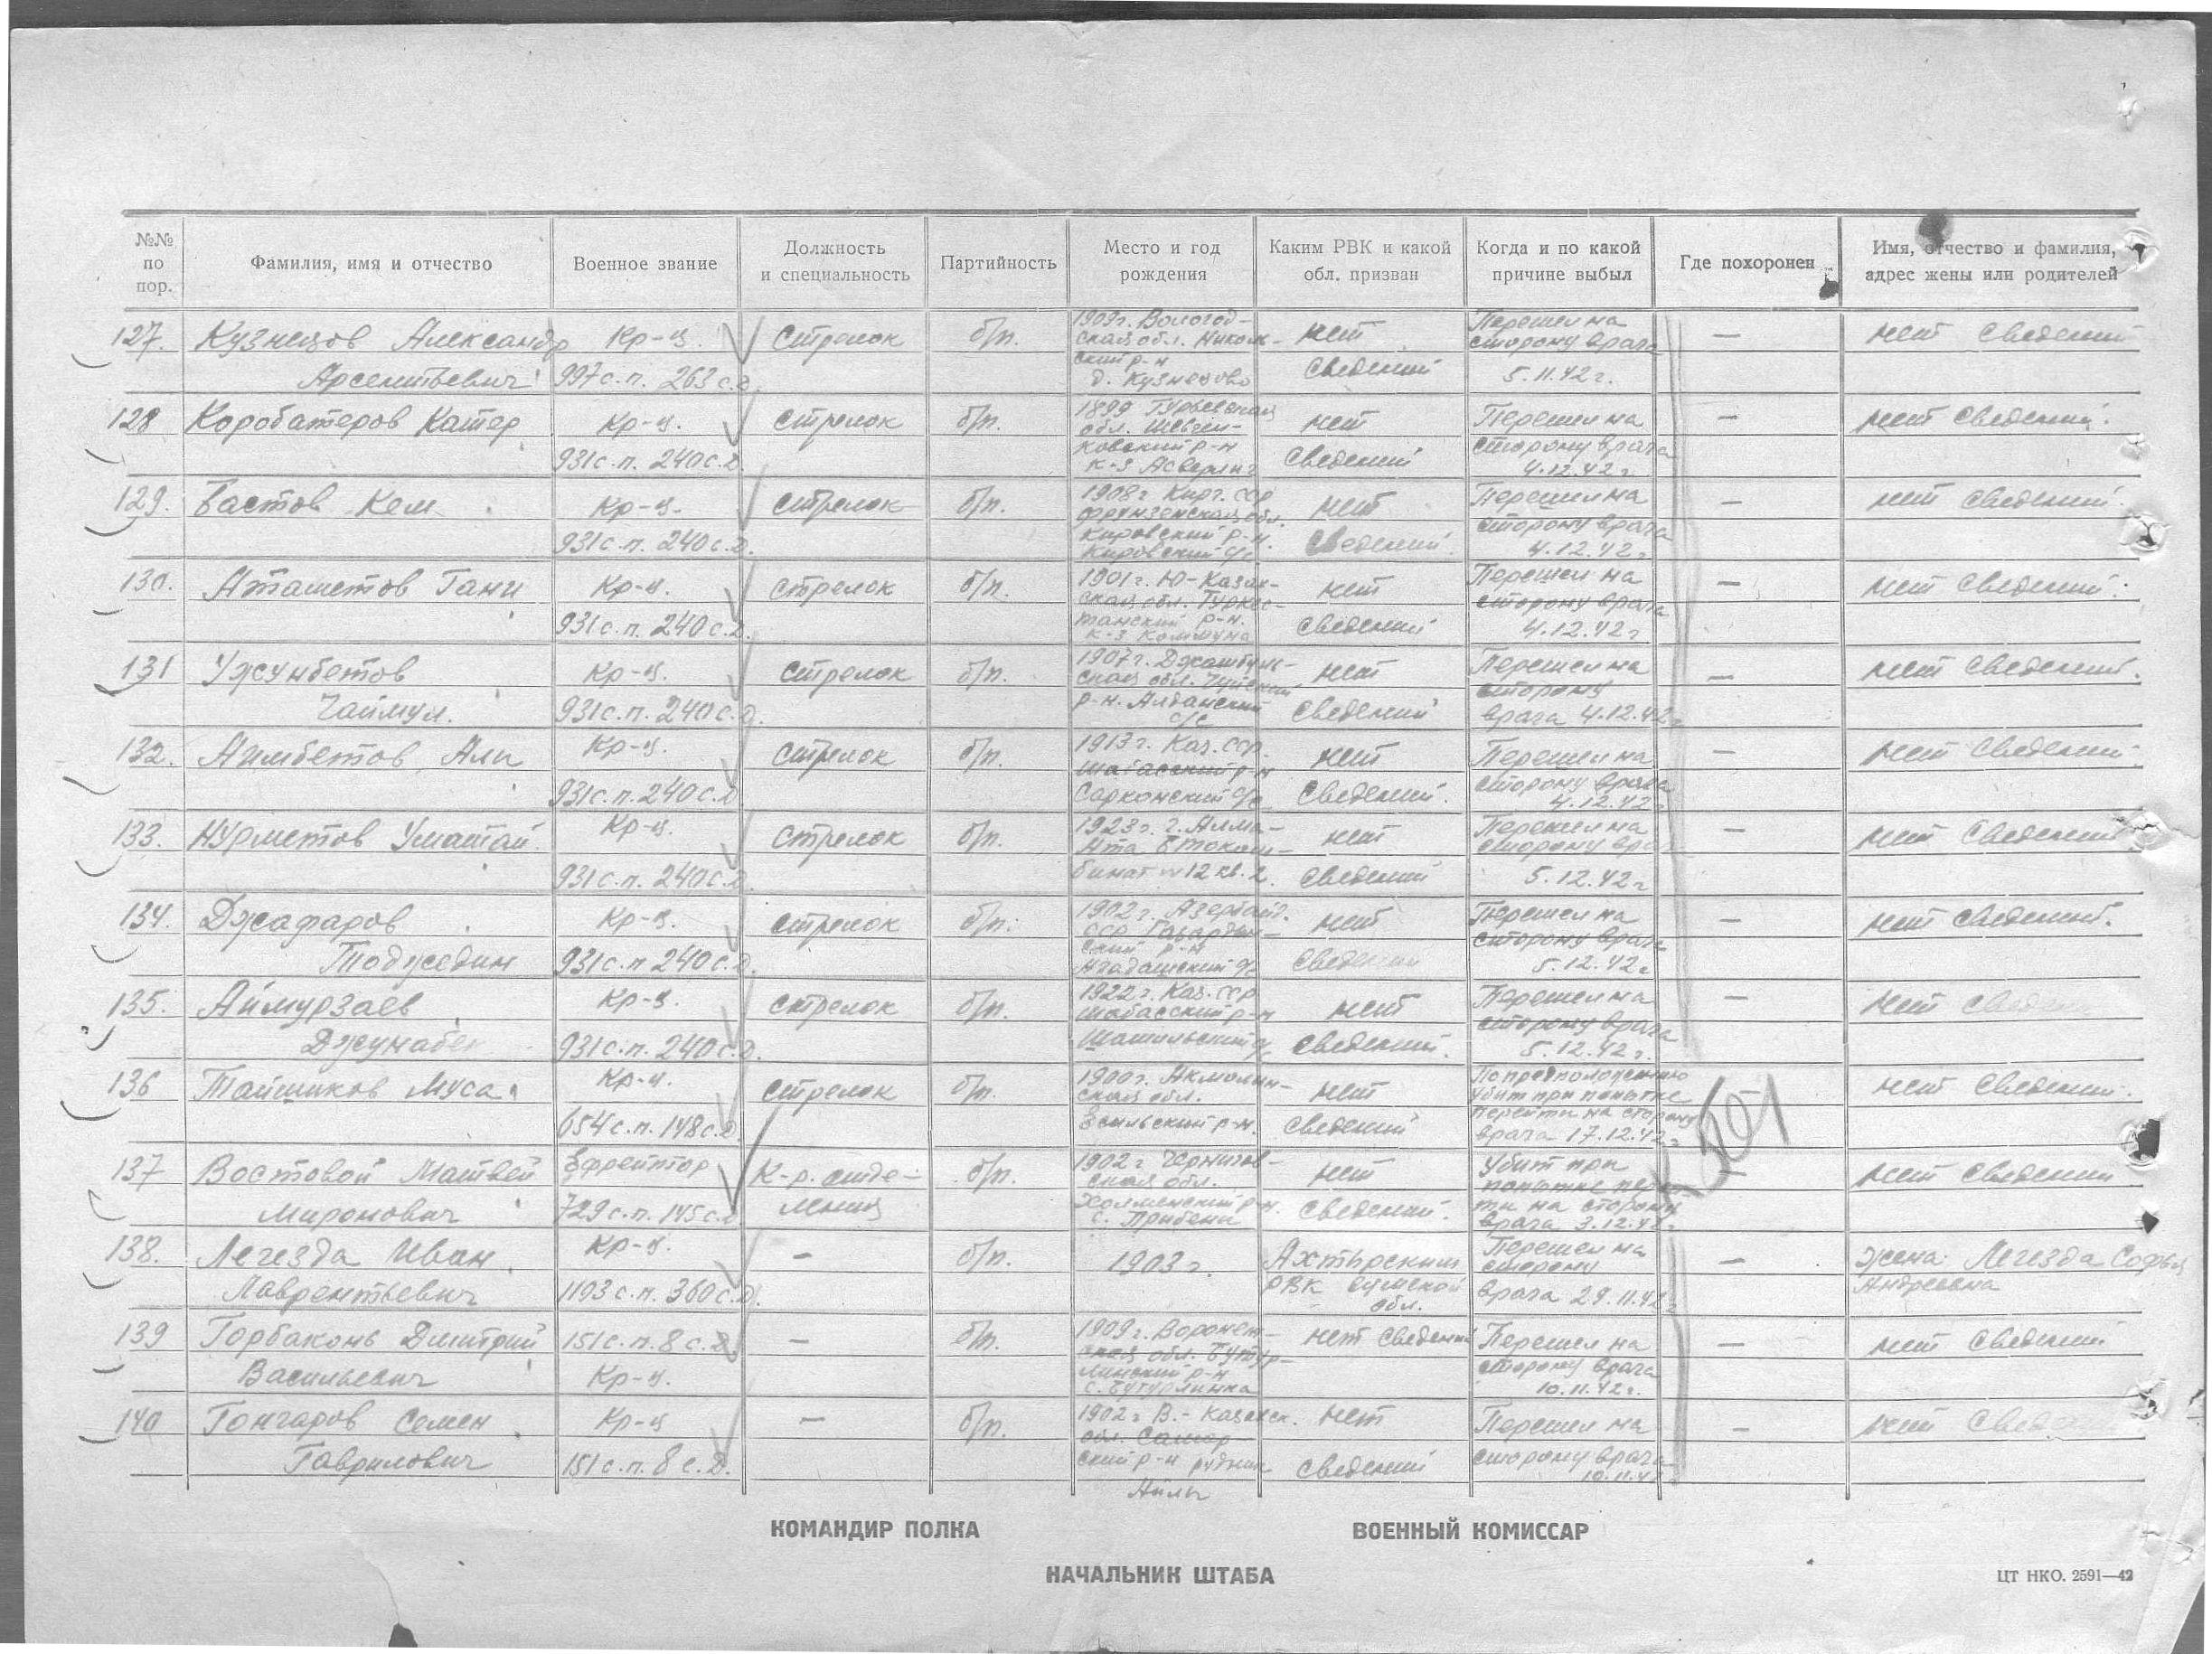 №№ по пор.
Фамилия, имя и отчество
Военное звание
Должность и специальность
Партийность
Место и год рождения
Каким РВК и какой обл. призван
Когда и по какой причине выбыл
Где похоронен
Имя, отчество и фамилия, адрес жены или родителей
127. Кузнецов Александр Кр-ц. Стрелок б/п. 1909г. Вологод- нет Перешел на — нет сведений
ская обл. Николь- сторону врага
ский р-н
Арсентьевич 997 с.п. 263 с.д. д. Кузнецово сведений 5.11.42 г.
128 Коробатеров Катер Кр-ц. стрелок б/п. 1899 Гурьевская нет Перешел на — нет сведений.
обл. Шевчен-
931 с.п. 240 с.д. ковский р-н сведений сторону врага
к-з 4.12.42 г.
129. Бастов Кем Кр-ц. стрелок б/п. 1908 г Кирг. ССР нет Перешел на — нет сведений.
Фрунзенская обл. сторону врага
931 с.п. 240 с.д. Кировский р-н. сведений. 4.12.42 г
Кировский с/с
130. Аташетов Гани Кр-ц. стрелок б/п. 1901 г. Ю-Казах- нет Перешел на — нет сведений.
ская обл. Туркес- сторону врага
931 с.п. 240 с.д. танский р-н. сведений 4.12.42 г
к-з Коммуна
131 Ужунбетов Кр-ц. стрелок б/п. 1907 г. Джамбул- нет Перешел на — нет сведений.
ская обл. Чуйский сторону
Чаймул. 931 с.п. 240 с.д. р-н. Алданский с/с сведений врага 4.12.42 г
132. Аимбетов Али Кр-ц. стрелок б/п. 1913 г. Каз. ССР. нет Перешел на — нет сведений.
р-н сторону врага
931 с.п. 240 с.д. с/с сведений. 4.12.42 г
133. Нурметов Уматай Кр-ц. стрелок б/п. 1923 г. г. Алма- нет Перешел на — нет сведений.
Ата сторону врага
931 с.п. 240 с.д. бинат №12 кв. 2. сведений 5.12.42 г
134. Джафаров Кр-ц. стрелок б/п. 1902 г. Азербайд. нет Перешел на — нет сведений.
ССР сторону врага
931 с.п 240 с.д. ский р-н сведений 5.12.42 г
Агадашский с/с
135. Аймурзаев Кр-ц. стрелок б/п. 1922 г. Каз. ССР нет Перешел на — нет сведений
р-н сторону врага
931 с.п. 240 с.д. с/с сведений. 5.12.42 г.
136 Тайшиков Муса Кр-ц. стрелок б/п. 1900 г. Акмолин- нет По предположению нет сведений.
ская обл. убит при попытке
654 с.п. 148 с.д. Есильский р-н. сведений перейти на сторону
врага 17.12.42 г
К 501
137 Востовой Матвей Ефрейтор К-р. отде- б/п. 1902 г. Чернигов- нет Убит при — нет сведений
ская обл. попытке перей-
Миронович 729 с.п. 145 с.д ления Холменский р-н. сведений. ти на сторону
с. Прибени врага 3.12.42 г
138. Легезда Иван Кр-ц. — б/п. 1903 г. Ахтырским Перешел на — жена Легезда Софья
Лаврентьевич 1193 с.п. 360 с.д. РВК Сумской обл. сторону врага 29.11.42 г Андреевна
139 Горбаконь Дмитрий 151 с.п. 8 с.д — б/п. 1909 г. Воронеж- нет сведений Перешел на — нет сведений
ская обл. Бутур- сторону врага
Васильевич Кр-ц. линский р-н 10.11.42 г.
с. Бутурлинка
140 Гончаров Семен Кр-ц — б/п. 1902 г В.-Казахск. нет Перешел на — нет сведений
обл. Самар-
Гаврилович 151 с.п. 8 с.д. ский р-н рудник сведений сторону врага
10.11.42
КОМАНДИР ПОЛКА
ВОЕННЫЙ КОМИССАР
НАЧАЛЬНИК ШТАБА
ЦТ НКО. 2591—42